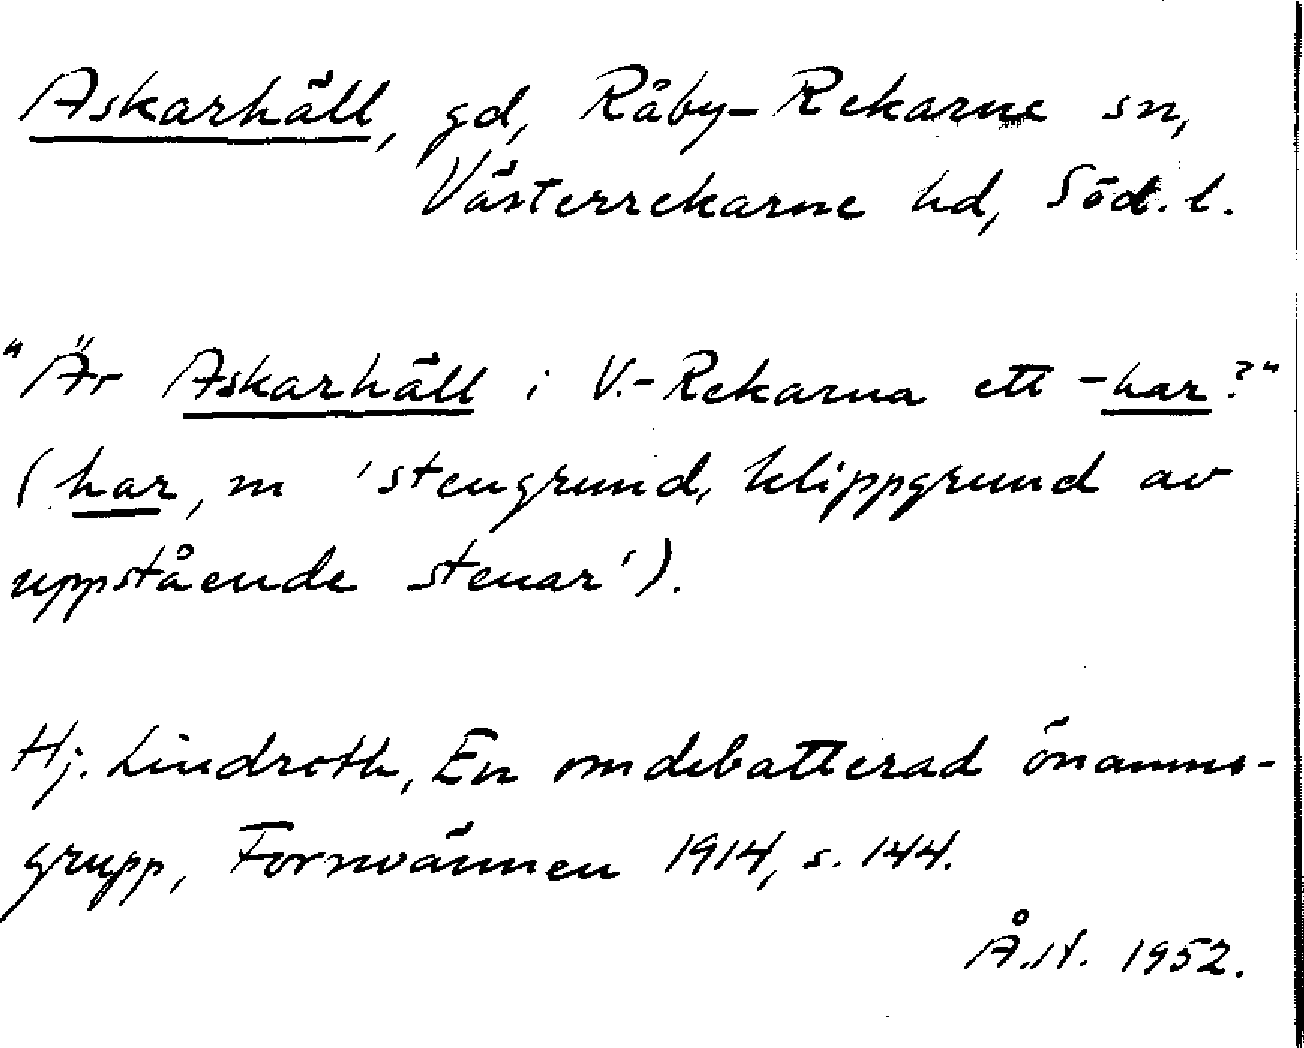 Askarhäll, gd, Råby-Rekarne sn,
Västerrekarne hd, Söd. l.
"Är Askarhäll i V.-Rekarna ett -har?"
(har, m 'stengrund, klippgrund av
uppstående stenar').
Hj. Lindroth, En omdebatterad önamns-
grupp, Fornvännen 1914, s. 144.
Å.N. 1952.